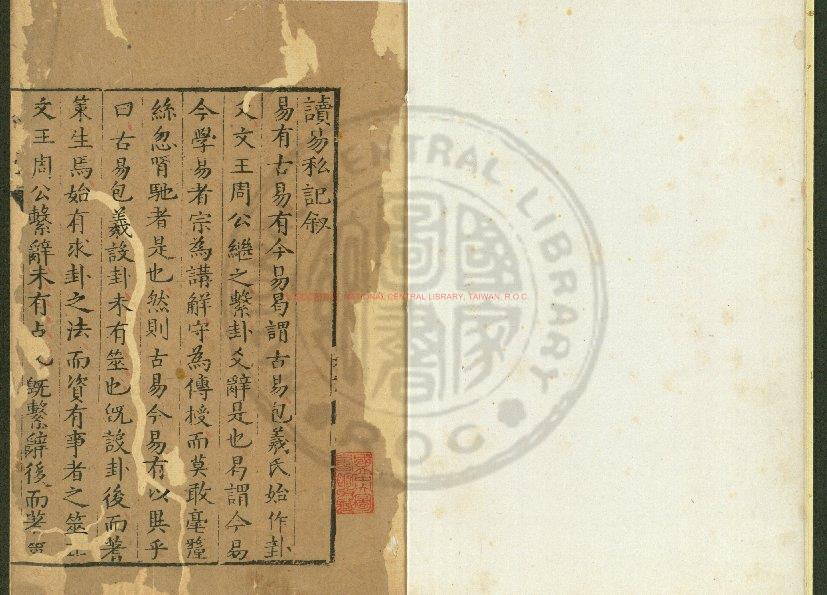 讀易私記叙
易有古易有今易曷謂古易包羲氏始作卦
爻文王周公繼之繫卦爻辭是也曷謂今易
今學易者宗為講解守為傳授而莫敢毫釐
絲忽背馳者是也然則古易今易有以異乎
曰古易包羲設卦未有筮也旣設卦後而蓍
策生焉始有求卦之法而資有事者之筮
文王周公繫辭未有占 旣繫辭後而著
CENTRAL LIBRARY
NATIONAL CENTRAL LIBRARY, TAIWAN, R.O.C.
國家圖書
ROC